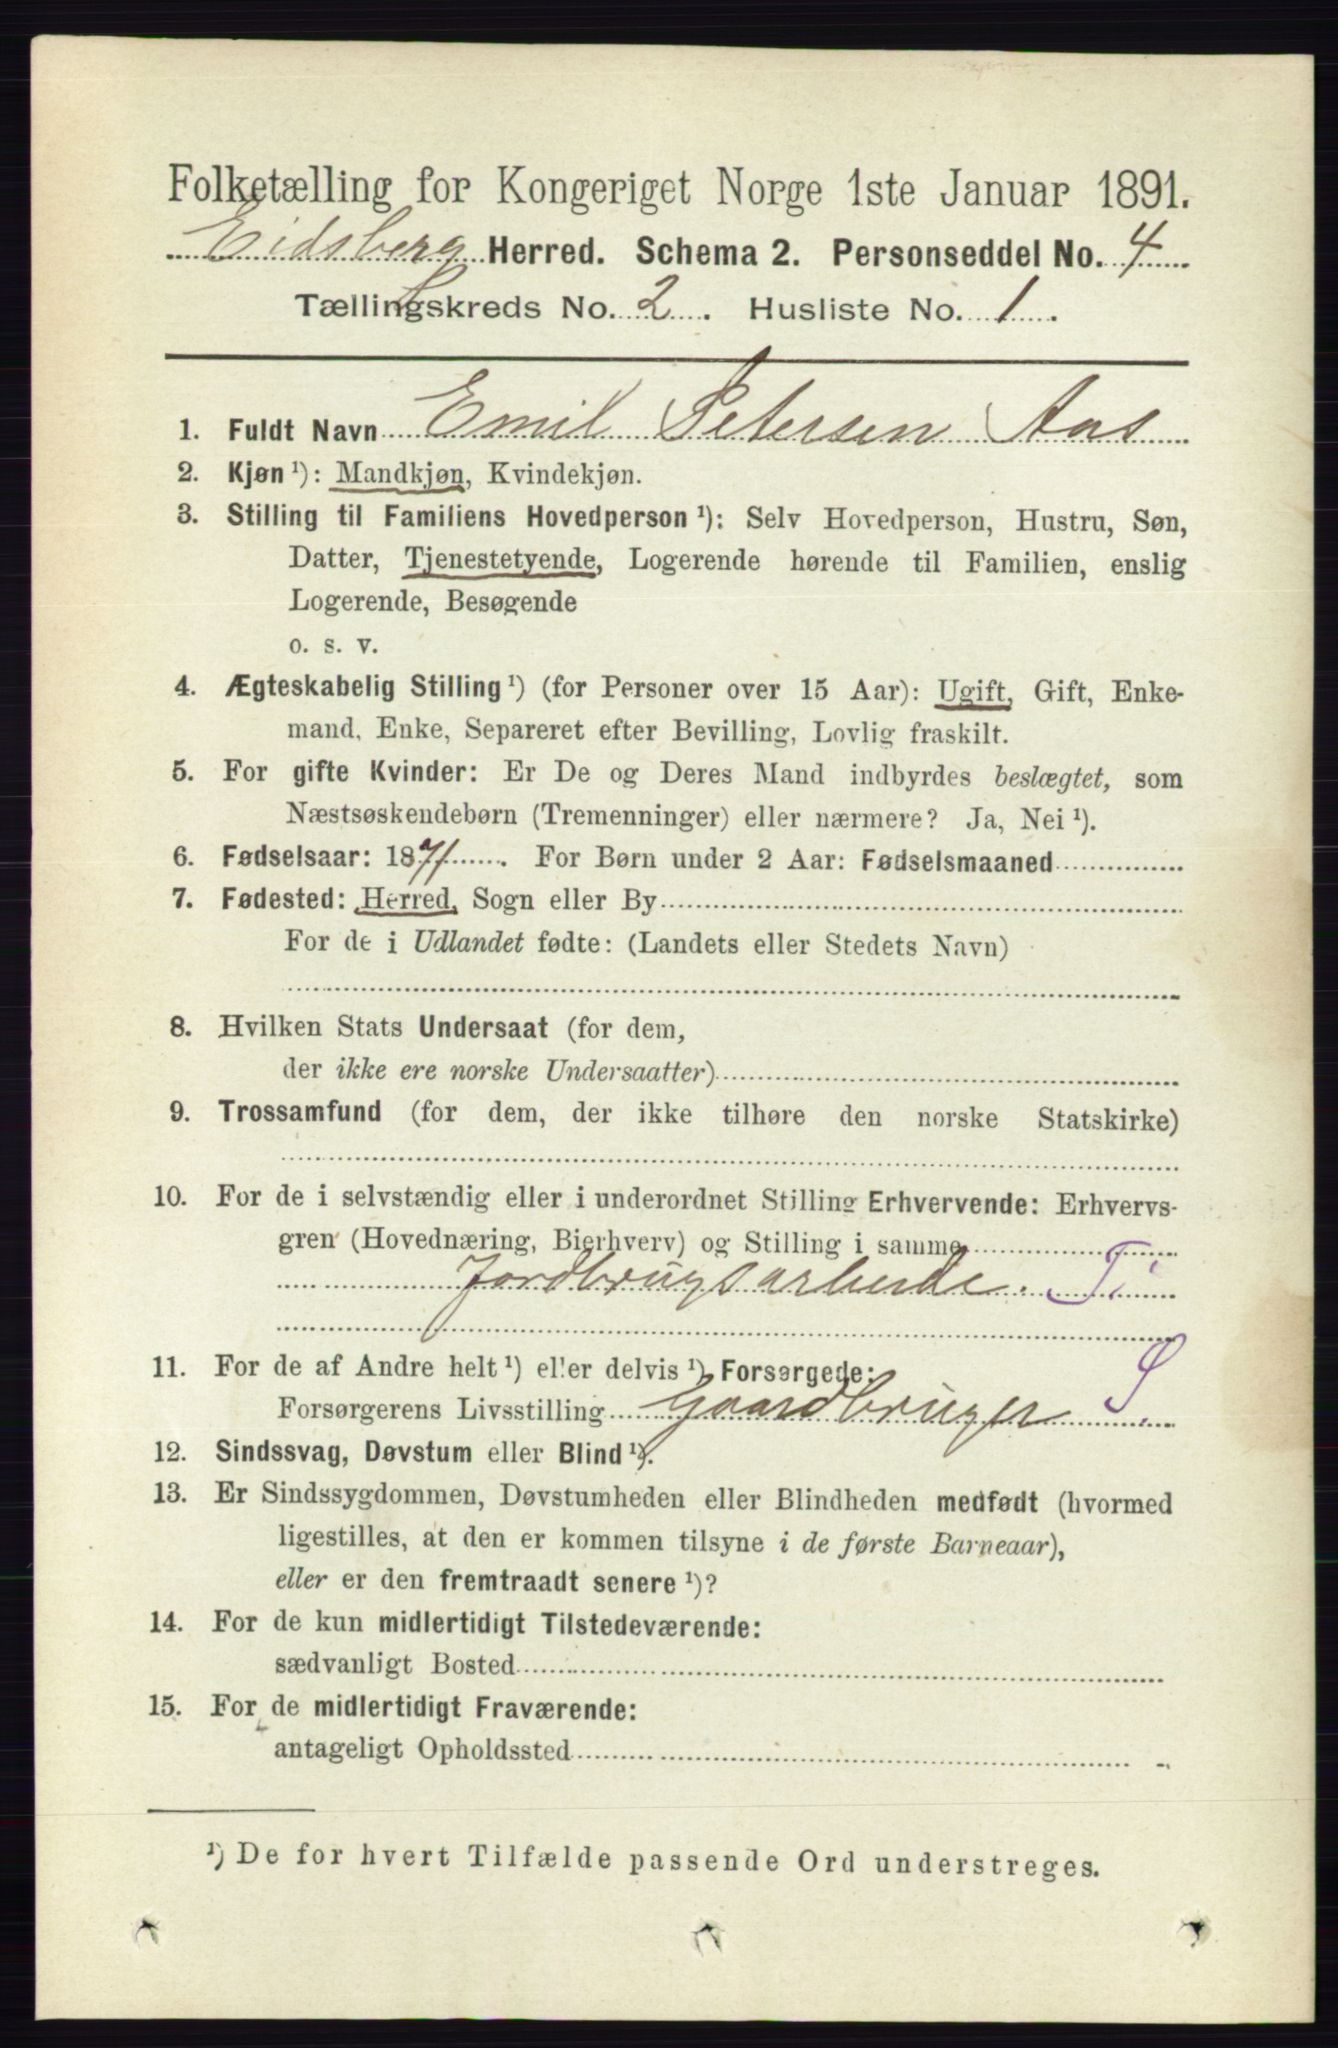 Folketælling for Kongeriget Norge 1ste Januar 1891.
Eidsberg Herred. Schema 2. Personseddel No. 4
Tællingskreds No. 2. Husliste No. 1.
1. Fuldt Navn Emil Petersen Aas
2. Kjøn ¹): Mandkjøn, Kvindekjøn.
3. Stilling til Familiens Hovedperson ¹): Selv Hovedperson, Hustru, Søn,
Datter, Tjenestetyende, Logerende hørende til Familien, enslig
Logerende, Besøgende
o. s. v.
4. Ægteskabelig Stilling ¹) (for Personer over 15 Aar): Ugift, Gift, Enke-
mand, Enke, Separeret efter Bevilling, Lovlig fraskilt.
5. For gifte Kvinder: Er De og Deres Mand indbyrdes beslægtet, som
Næstsøskendebørn (Tremenninger) eller nærmere? Ja, Nei ¹).
6. Fødselsaar: 1871. For Børn under 2 Aar: Fødselsmaaned
7. Fødested: Herred, Sogn eller By
For de i Udlandet fødte: (Landets eller Stedets Navn)
8. Hvilken Stats Undersaat (for dem,
der ikke ere norske Undersaatter)
9. Trossamfund (for dem, der ikke tilhøre den norske Statskirke)
10. For de i selvstændig eller i underordnet Stilling Erhvervende: Erhvervs-
gren (Hovednæring, Bierhverv) og Stilling i samme
Jordbrugsarbeide. T
11. For de af Andre helt ¹) eller delvis ¹) Forsørgede:
Forsørgerens Livsstilling Gaardbruger S.
12. Sindssvag, Døvstum eller Blind ¹).
13. Er Sindssygdommen, Døvstumheden eller Blindheden medfødt (hvormed
ligestilles, at den er kommen tilsyne i de første Barneaar),
eller er den fremtraadt senere ¹)?
14. For de kun midlertidigt Tilstedeværende:
sædvanligt Bosted
15. For de midlertidigt Fraværende:
antageligt Opholdssted
¹) De for hvert Tilfælde passende Ord understreges.